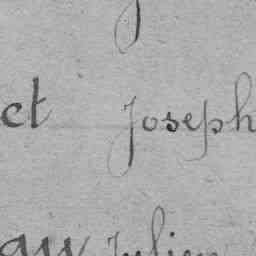 et Joseph
au Julien